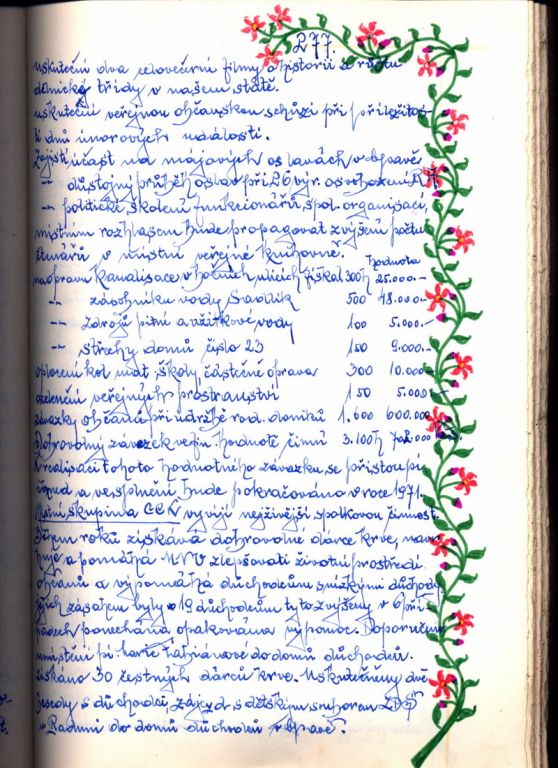 277.
uskuteční dva celovečerní filmy o historii a růstu
dělnické třídy v našem státě.
uskuteční veřejnou občanskou schůzi při příležitos
ti dnů únorových událostí.
Zajistí účast na májových oslavách v Opavě
-- důstojný průběh oslav při 26 výr. osvobození RA
-- politické školení funkcionářů, spol. organisací,
místním rozhlasem bude propagovat zvýšení počtu
čtenářů v místní veřejné knihovně.
hodnota
na opravu kanalisace v bočních ulicích fiškal 300h 25.000.-
-- zásobníku vody Sadlik 500 48.000.-
-- zdrojů pitné a užitkové vody 100 5.000.-
-- střechy domů číslo 23 150 9.000.-
oplocení kol mat. školy, částečné oprava 300 10.000
ozelenění veřejných prostranství 150 5.000
závazky občanů při údržbě rod. domků 1.600 600.000
Dobrovolný závazek ve fin. hodnotě činů 3.100h 702.000
K realisaci tohoto hodnotného závazku se přistoupí
ihned a ve splnění bude pokračováno v roce 1971.
Místní skupina ČČK vyvíjí nejživější spolkovou činnost.
Během roků získává dobrovolné dárce krve, nav
a pomáhá MNV zlepšovati životní prostředí
občanů a vypomáhá důchodcům s nízkými důchody.
Jejich zásahem byly 19 důchodcům tyto zvýšeny v 6 pří
padech ponechána opakována výpomoc. Doporučeno
umístění pí do domů důchodců.
Získáno 30 čestných dárců krve. Uskutečněny dvě
besedy s důchodci, zájezd s dětským souborem ZDŠ
v Raduni do domů důchodců v Opavě.